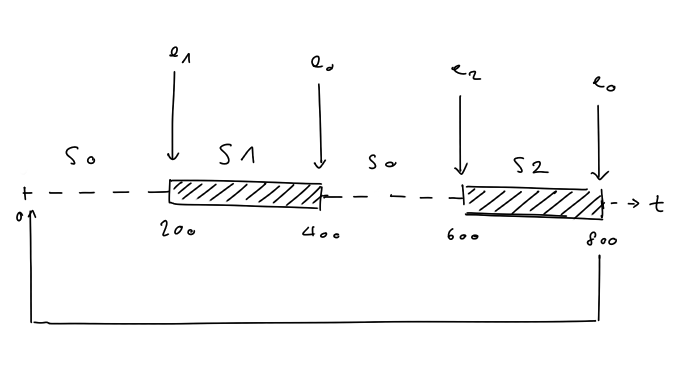 e1 e0 e2 e0
S0 S1 S0 S2
0 200 400 600 800 t